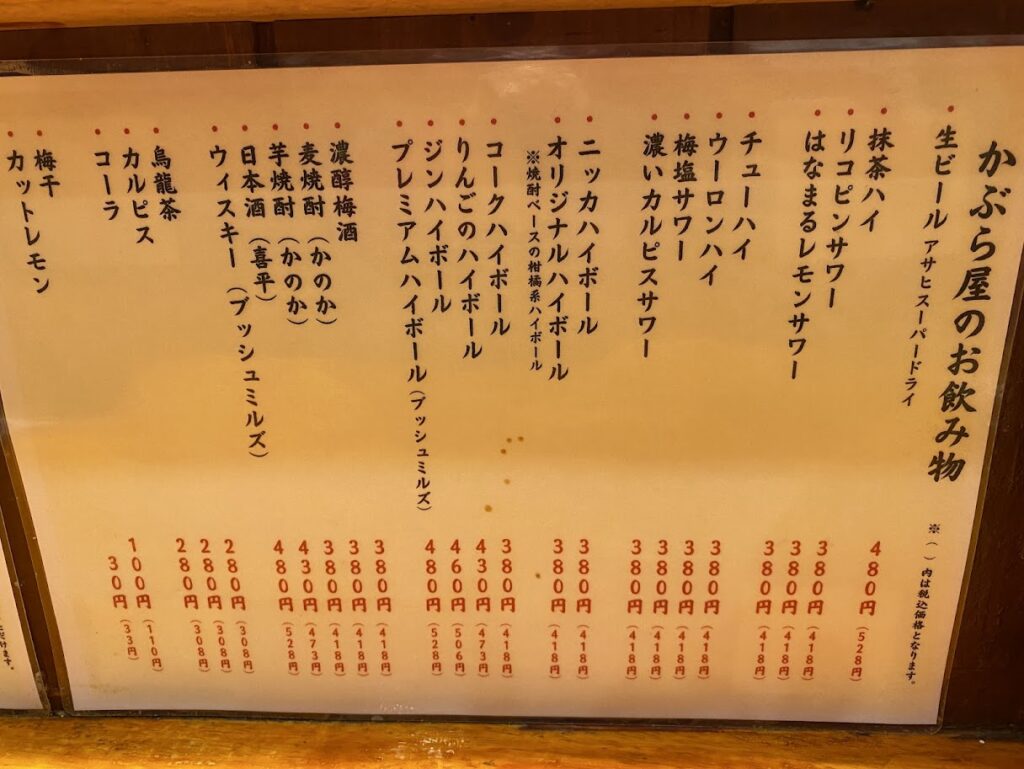 かぶら屋のお飲み物
※( )内は税込価格となります。
・生ビール アサヒスーパードライ 480円(528円)
・抹茶ハイ 380円(418円)
・リコピンサワー 380円(418円)
・はなまるレモンサワー 380円(418円)
・チューハイ 380円(418円)
・ウーロンハイ 380円(418円)
・梅塩サワー 380円(418円)
・濃いカルピスサワー 380円(418円)
・ニッカハイボール 380円(418円)
・オリジナルハイボール 380円(418円)
※焼酎ベースの柑橘系ハイボール
・コークハイボール 380円(418円)
・りんごのハイボール 430円(473円)
・ジンハイボール 460円(506円)
・プレミアムハイボール(ブッシュミルズ) 480円(528円)
・濃醇梅酒 380円(418円)
・麦焼酎(かのか) 380円(418円)
・芋焼酎(かのか) 380円(418円)
・日本酒(喜平) 430円(473円)
・ウィスキー(ブッシュミルズ) 480円(528円)
・烏龍茶 280円(308円)
・カルピス 280円(308円)
・コーラ 280円(308円)
・梅干 100円(110円)
・カットレモン 30円(33円)
だけます。